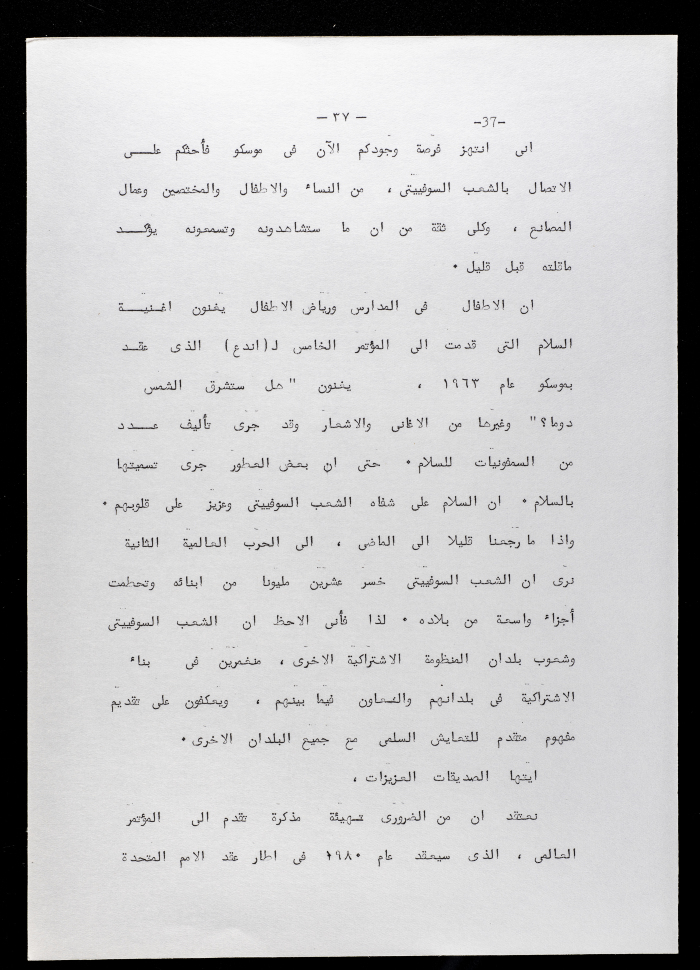 -37-
— ٣٧ —
انى انتهز فرصة وجودكم الآن فى موسكو فأحثكم علــى
الاتصال بالشعب السوفييتى ، من النساء والاطفال والمختصين وعمال
المصانع ، وكلى ثقة من ان ما ستشاهدونه وتسمعونه يؤكــد
ماقلته قبل قليل ٠
ان الاطفال فى المدارس ورياض الاطفال يغنون اغنيــة
السلام التى قدمت الى المؤتمر الخامس لـ (اندع) الذى عقـد
بموسكو عام ١٩٦٣ ، يغنون "هل ستشرق الشمس
دوما؟" وغيرها من الاغانى والاشعار وقد جرى تأليف عــدد
من السمفونيات للسلام ٠ حتى ان بعض العطور جرى تسميتها
بالسلام ٠ ان السلام على شفاه الشعب السوفييتى وعزيز على قلوبهم ٠
واذا ما رجعنا قليلا الى الماضى ، الى الحرب العالمية الثانية
نرى ان الشعب السوفييتى خسر عشرين مليونا من ابنائه وتحطمت
أجزاء واسعة من بلاده ٠ لذا فأنى الاحظ ان الشعب السوفييتى
وشعوب بلدان المنظومة الاشتراكية الاخرى ، منغمرين فى بناء
الاشتراكية فى بلدانهم والتعاون فيما بينهم ، ويعكفون على تقديم
مفهوم متقدم للتعايش السلمى مع جميع البلدان الاخرى ٠
ايتها الصديقات العزيزات ،
نعتقد ان من الضرورى تهيئة مذكرة تقدم الى المؤتمر
العالمى ، الذى سيعقد عام ١٩٨٠ فى اطار عقد الامم المتحدة